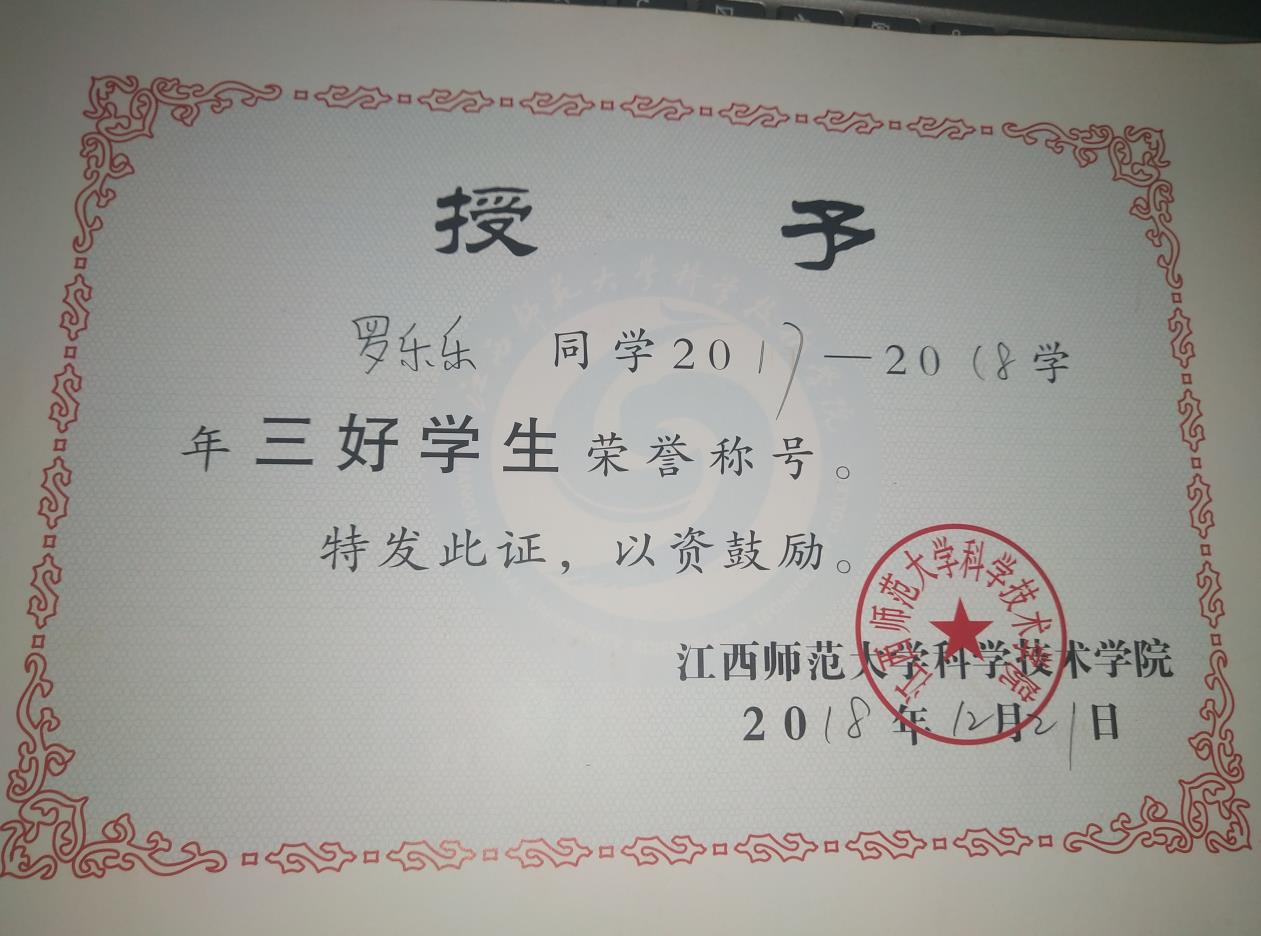 授予
罗乐乐 同学2017—2018学
年三好学生荣誉称号。
特发此证，以资鼓励。
江西师范大学科学技术学院
2018年12月21日
江西师范大学科学技术学院